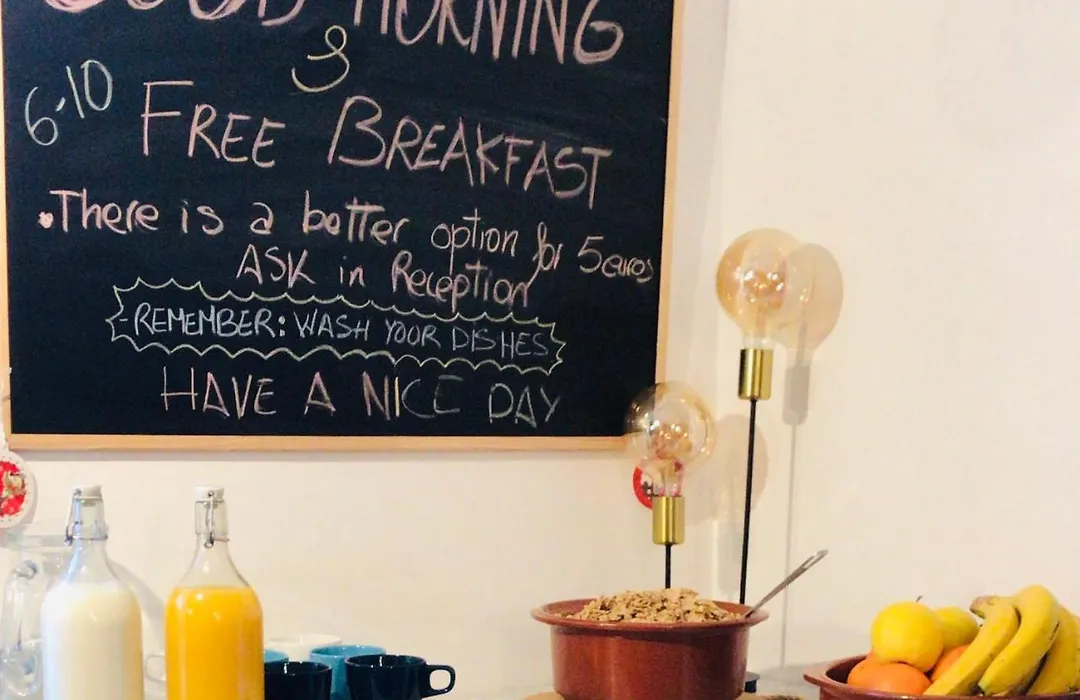 GOOD MORNING
6-10
FREE BREAKFAST
•There is a better option for 5euros
ASK in Reception
-REMEMBER: WASH YOUR DISHES
HAVE A NICE DAY